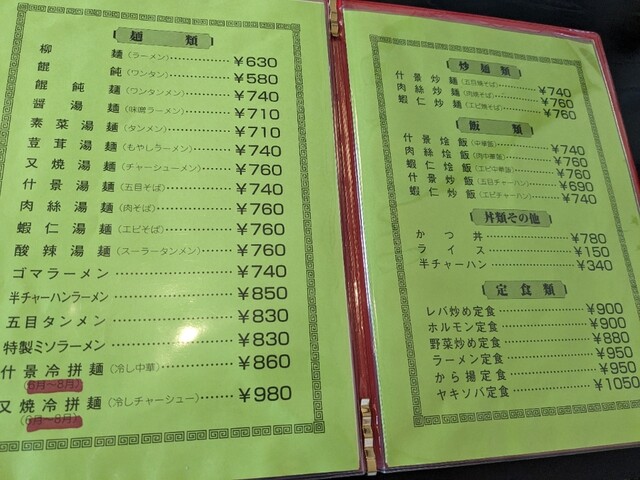 麺類
柳麺(ラーメン)…………¥630
餛飩(ワンタン)…………¥580
餛飩麺(ワンタンメン)…………¥740
醤湯麺(味噌ラーメン)…………¥710
素菜湯麺(タンメン)…………¥710
荳茸湯麺(もやしラーメン)…………¥740
叉焼湯麺(チャーシューメン)…………¥760
什景湯麺(五目そば)…………¥740
肉絲湯麺(肉そば)…………¥760
蝦仁湯麺(エビそば)…………¥760
酸辣湯麺(スーラータンメン)…………¥760
ゴマラーメン…………¥740
半チャーハンラーメン…………¥850
五目タンメン…………¥830
特製ミソラーメン…………¥830
什景冷拼麺(冷し中華)…………¥860
(6月〜8月)
叉焼冷拼麺(冷しチャーシュー)…………¥980
(6月〜8月)
炒麺類
什景炒麺(五目焼そば)…………¥740
肉絲炒麺(肉焼そば)…………¥760
蝦仁炒麺(エビ焼そば)…………¥760
飯類
什景燴飯(中華飯)…………¥740
肉絲燴飯(肉中華飯)…………¥760
蝦仁燴飯(エビ中華飯)…………¥760
什景炒飯(五目チャーハン)…………¥690
蝦仁炒飯(エビチャーハン)…………¥740
丼類その他
かつ丼…………¥780
ライス…………¥150
半チャーハン…………¥340
定食類
レバ炒め定食…………¥900
ホルモン定食…………¥900
野菜炒め定食…………¥880
ラーメン定食…………¥950
から揚定食…………¥950
ヤキソバ定食…………¥1050